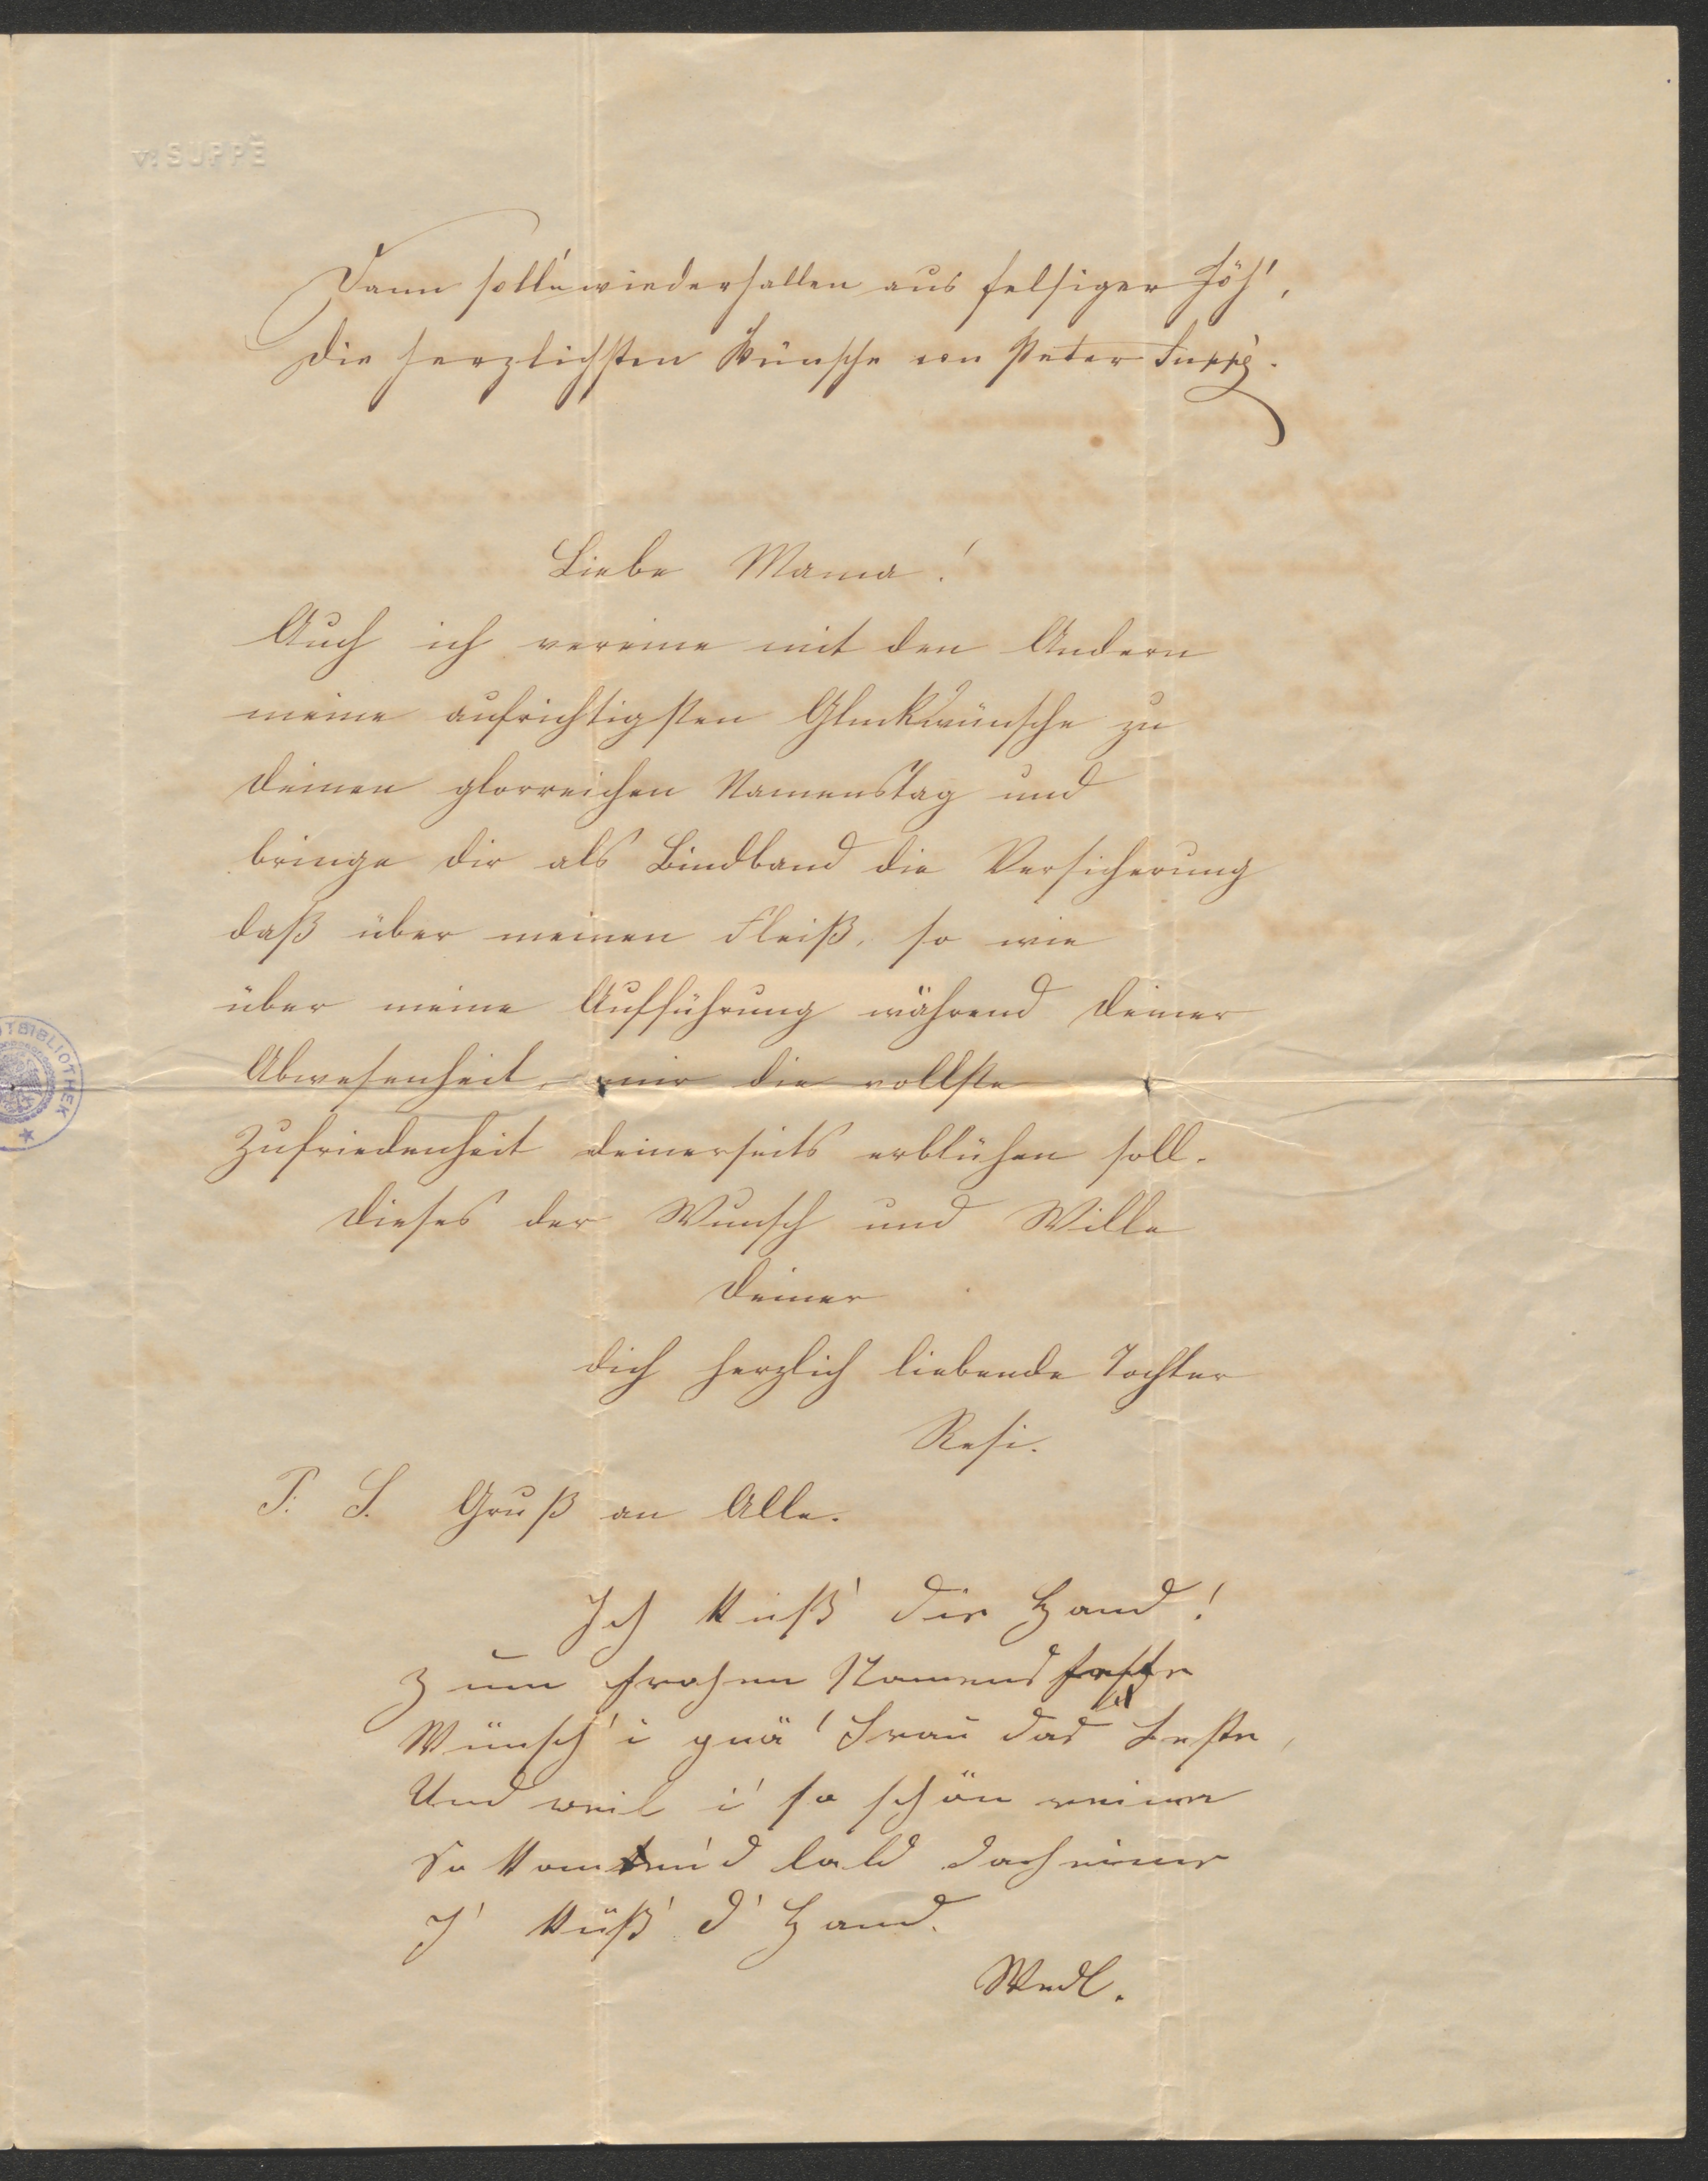 v: SUPPÈ
Dann soll'n wiederhallen aus felsiger Höh',
Die herzlichsten Wünsche von Peter Suppè.
Liebe Mama!
Auch ich vereine mit den Andern
meine aufrichtigsten Glückwünsche zu
deinen glorreichen Namenstag und
bringe dir als Bindband die Versicherung
daß über meinen Fleiß, so wie
über meine Aufführung während deiner
Abwesenheit, mir die vollste
Zufriedenheit deinerseits erblühen soll.
Dieses der Wunsch und Wille
Deiner
dich herzlich liebende Tochter
Resi.
P. S. Gruß an Alle.
Ich küß' die Hand!
Zum frohen Namensfeste
Wünsch' i gnä' Frau das Beste,
Und weil i' so schön
So bald
I' küß' d' Hand.
Wedl.
TBIBLIOTHEK